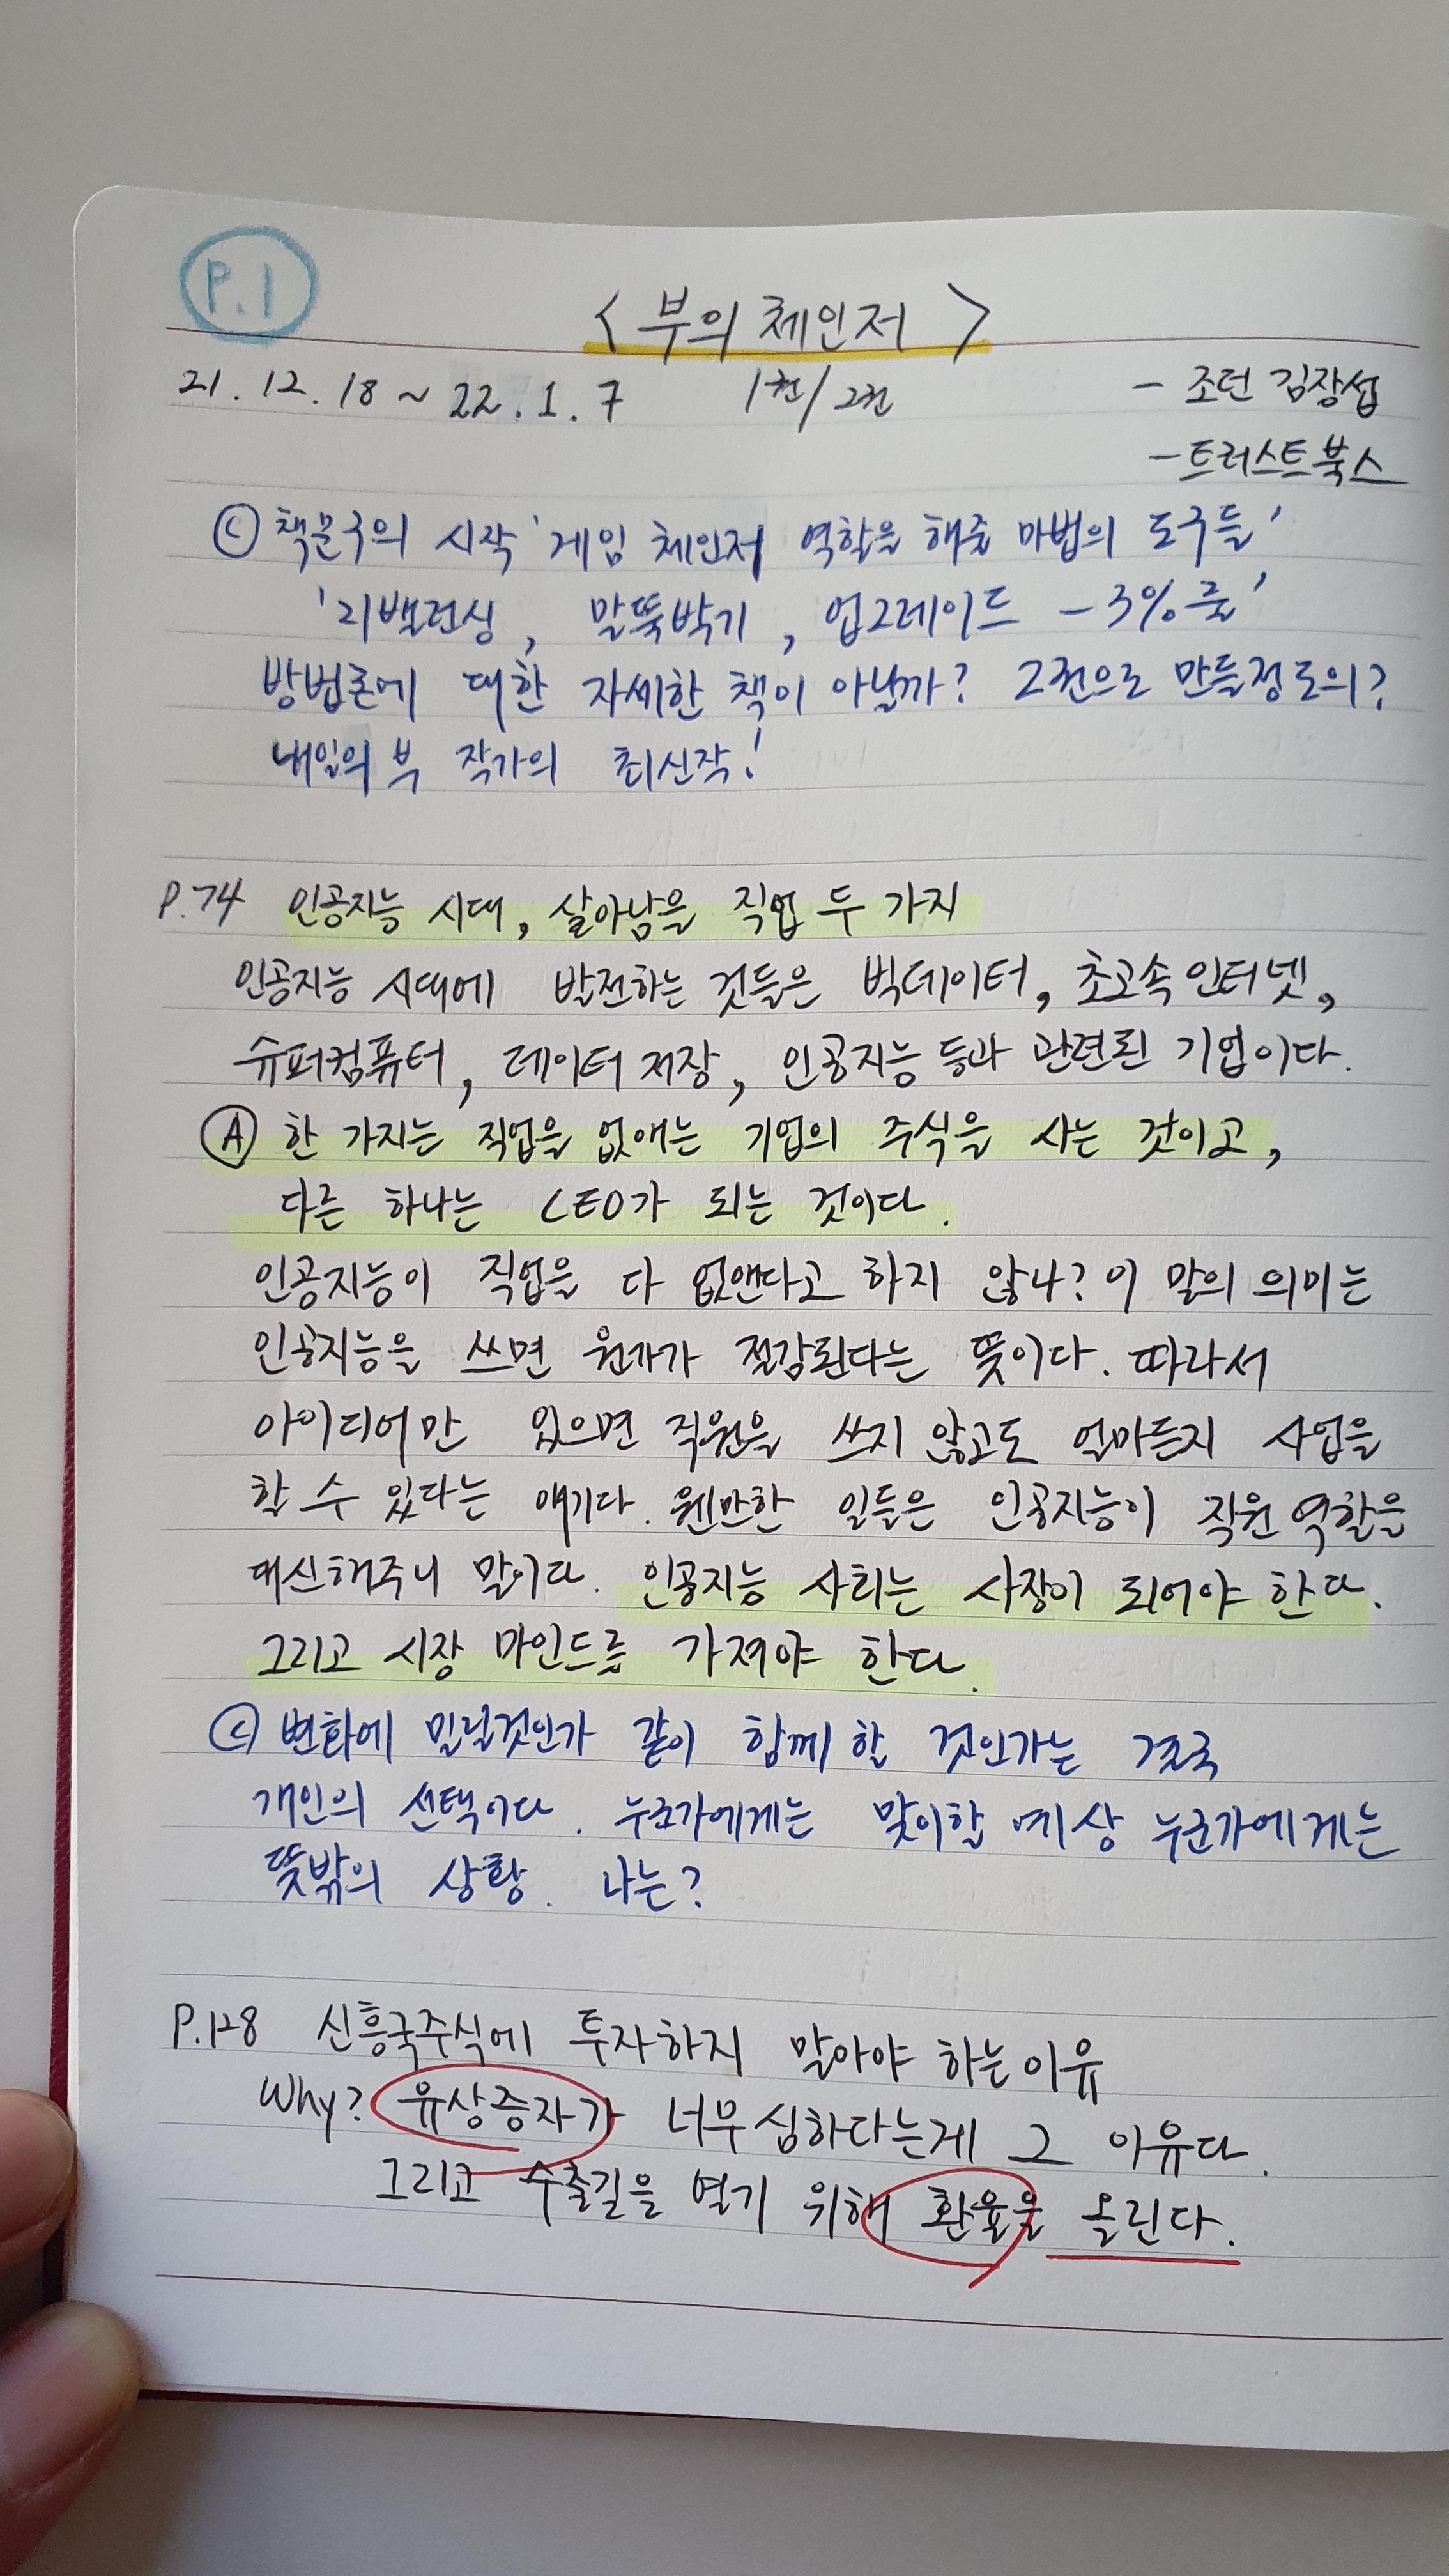 P.1
< 부의 체인저 >
21. 12. 18 ~ 22. 1. 7 1권/2권 - 조던 김장섭
- 트러스트북스
ⓒ 책문구의 시작 '게임 체인저 역할을 해줄 마법의 도구들'
'리밸런싱, 말뚝박기, 업그레이드 -3%룰'
방법론에 대한 자세한 책이 아닐까? 2권으로 만들정도의?
내일의 부 작가의 최신작!
P.74 인공지능 시대, 살아남을 직업 두 가지
인공지능 시대에 발전하는 것들은 빅데이터, 초고속 인터넷,
슈퍼컴퓨터, 데이터 저장, 인공지능 등과 관련된 기업이다.
Ⓐ 한 가지는 직업을 없애는 기업의 주식을 사는 것이고,
다른 하나는 CEO가 되는 것이다.
인공지능이 직업을 다 없앤다고 하지 않나? 이 말의 의미는
인공지능을 쓰면 원가가 절감된다는 뜻이다. 따라서
아이디어만 있으면 직원을 쓰지 않고도 얼마든지 사업을
할 수 있다는 얘기다. 웬만한 일들은 인공지능이 직원 역할을
대신해주니 말이다. 인공지능 사회는 사장이 되어야 한다.
그리고 시장 마인드를 가져야 한다.
ⓒ 변화에 밀릴것인가 같이 함께 할 것인가는 결국
개인의 선택이다. 누군가에게는 맞이할 예상 누군가에게는
뜻밖의 상황. 나는?
P.128 신흥국주식에 투자하지 말아야 하는 이유
Why? 유상증자가 너무 심하다는게 그 이유다.
그리고 수출길을 열기 위해 환율을 올린다.